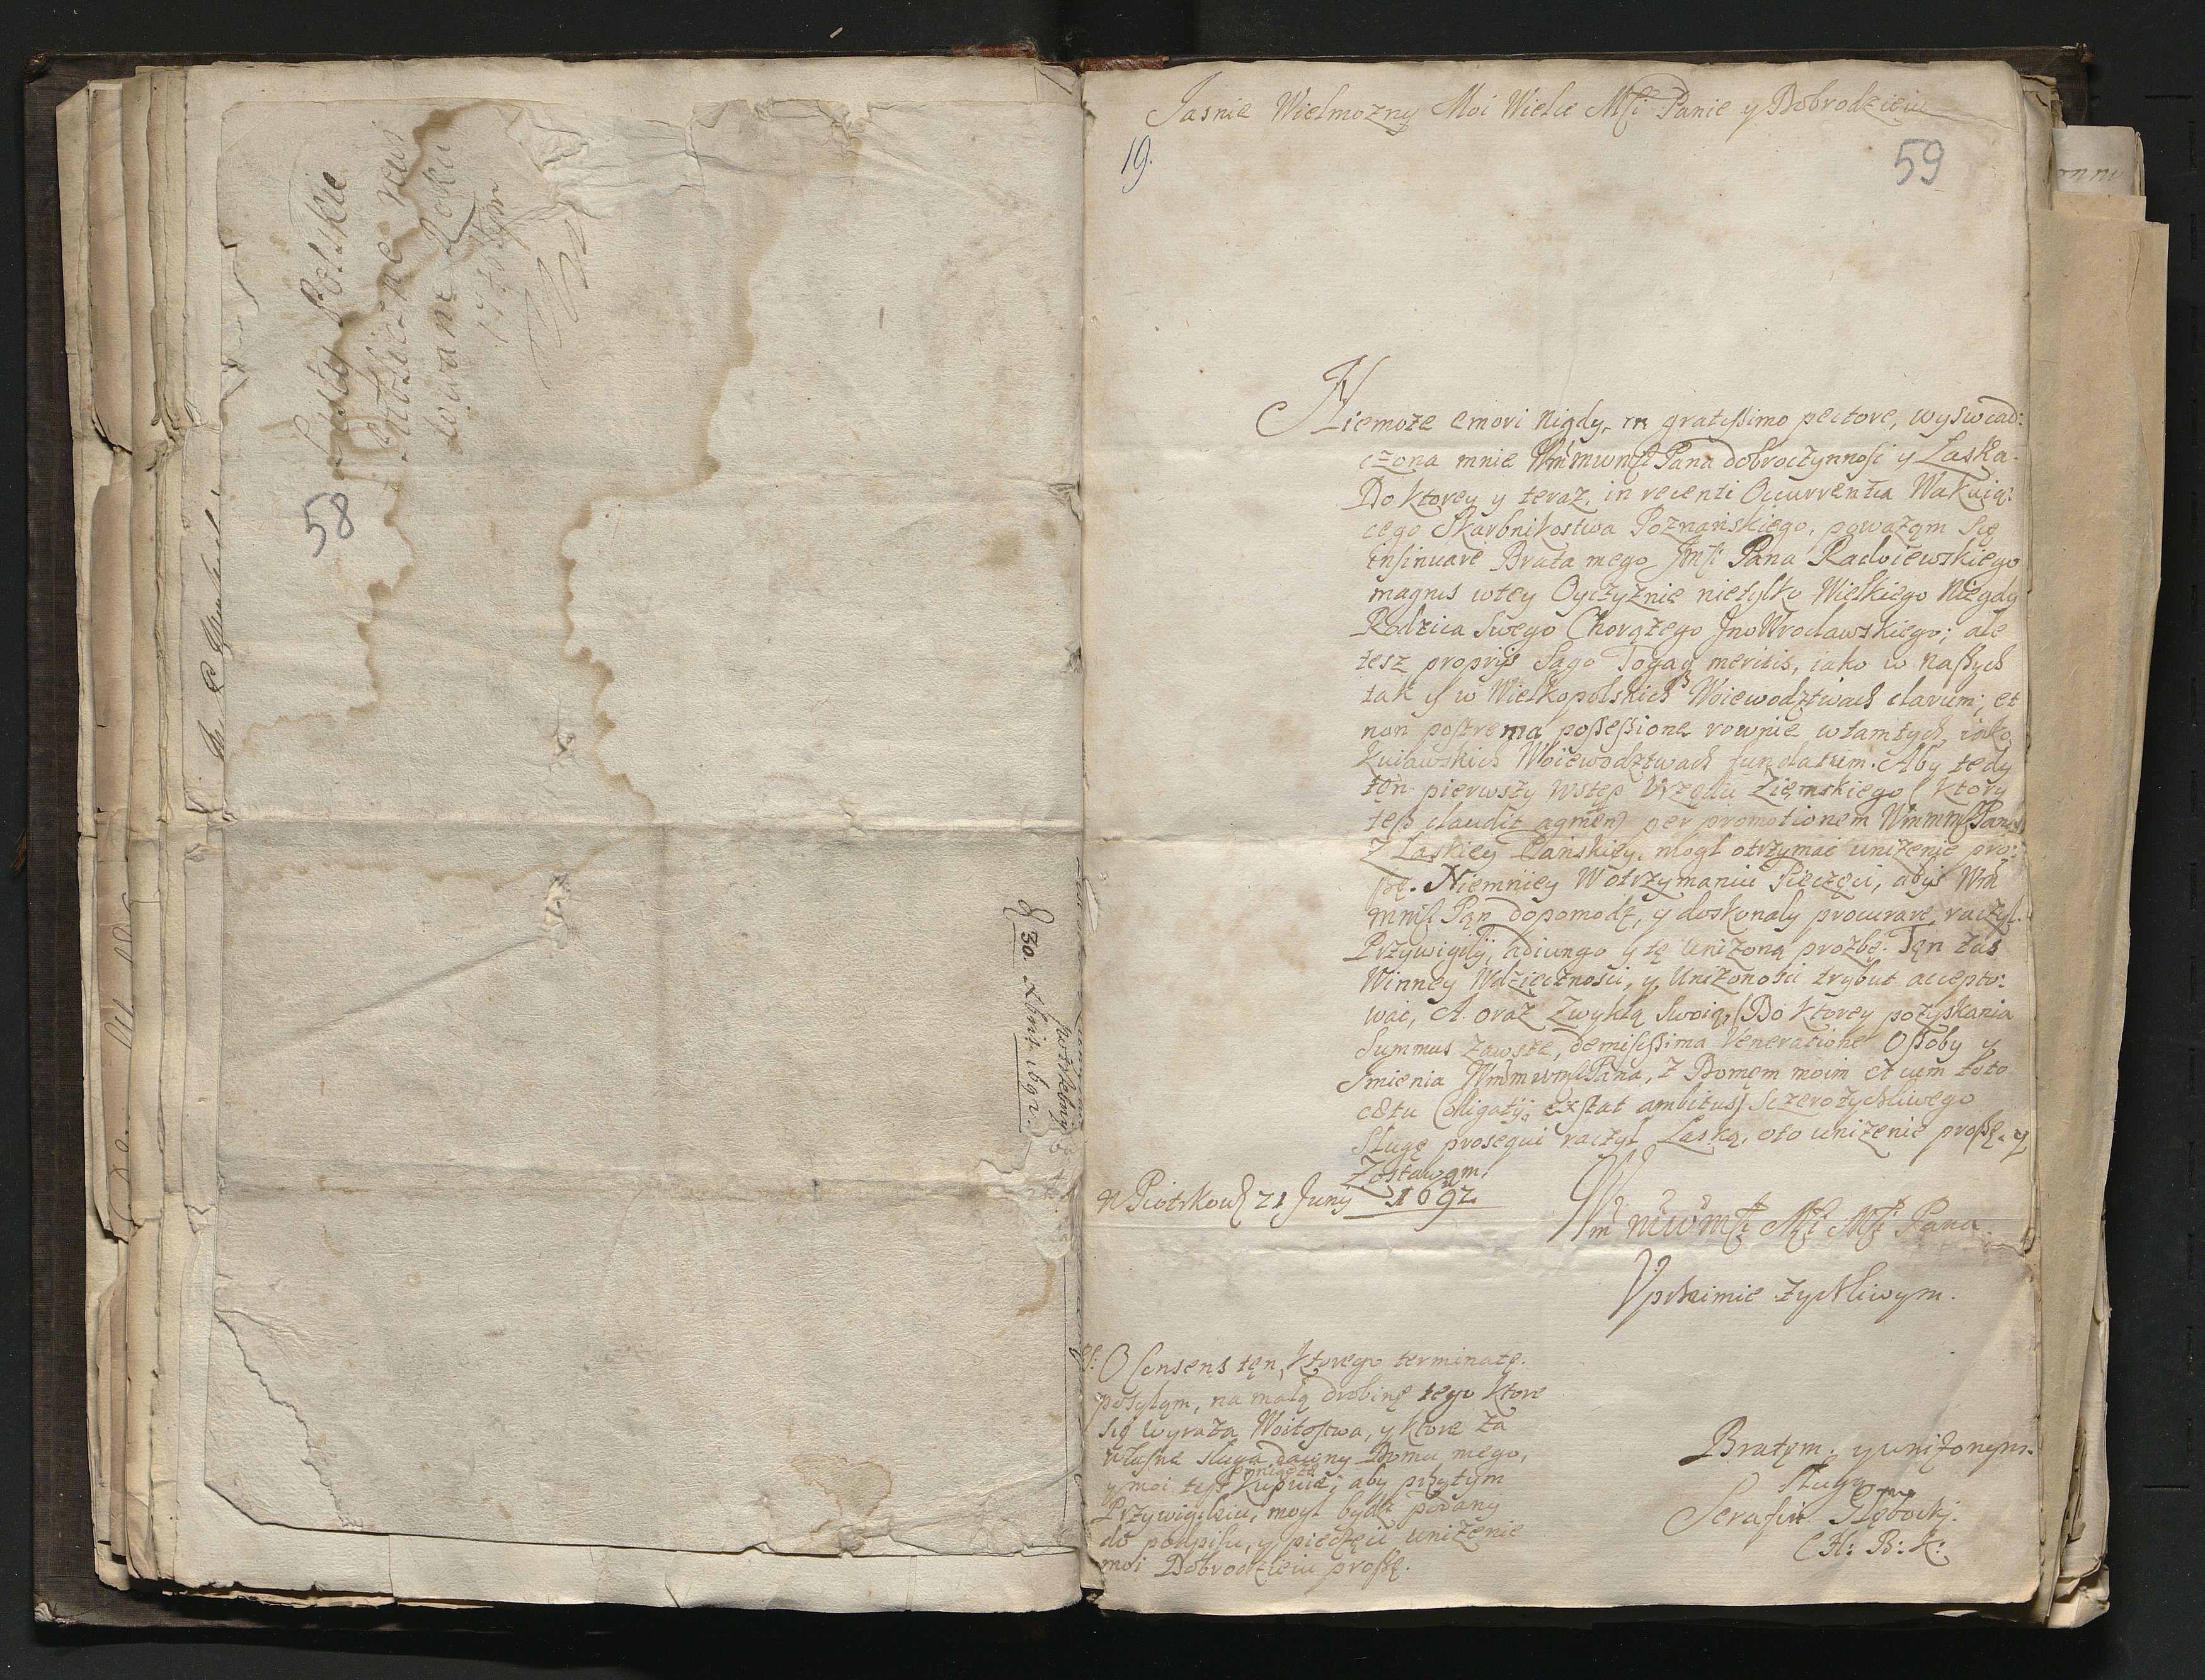 Listy Polskie
Publiczne
Roku
58
30. Xbris. 1692.
Jasnie Wielmozny Moi Wielce Mśći Panie y Dobrodzieiu
19.
59
Niemoże emori nigdy, in gratissimo pectore, wyswiad:
czona mnie WmmwmśćPana dobroczynnosc y Laska.
Do ktorey y teraz, in recenti Occurrentia Wakuią:
cego Skarbnikostwa Poznańskiego, poważąm się
insinuare Brata mego Jmśći Pana Radoiewskiego
magnis wtey Oyczyznie nietylko Wielkiego Niegdy
Rodzica Swego Chorążego JnoWrocławskiego; ale
tesz proprijs Sago Togaq meritis, iako w naszych
tak y w Wielkopolskich Woiewodztwach clarum; et
non postrema possessione rownie wtamtych, iako
Kuiawskich Woiewodztwach fundatum. Aby tedy
tęn pierwszy wstęp Vrzędu Ziemskiego (ktory
tesz claudit agmen) per promotionem WmmmśćPana
Z Laskiey Pańskiey, mogl otrzymać uniżenie pro:
szę. Niemniey W otrzymaniu Pieczęci, abyś Wm
mmść Pan dopomodz, y doskonaly procurare raczyl.
Przywigily, adiungo y tę uniżoną prozbę. Tęn zas
Winney Wdzięcznosci, y Unizonosci trybut accepto:
wać, A oraz Zwykłą Swoią, (Do ktorey pozyskania
Summus zawsze, demississima Veneratione Osoby y
Jmienia WmmwmśćPana, z Domem moim et cum toto
cætu Colligatij, exstat ambitus) sczerożyczliwego
Slugę prosequi raczyl Laską, oto uniżenie proszę. y
Zostawąm.
w Piotrkow 21 Juny 1692
Wm mwmśći Mśći Mśći Pana
Vprzeimie życzliwym.
Bratęm y uniżonym
Slugą
Serafin Słębocki
C H: B: K:
PS: O Consens tęn, ktorego terminatę.
posyląm, na małą drobinę tego ktore
się wyraża Woitostwa, y ktore za
własne sługa dawny Domu mego,
y moi tesz kupuie, aby przytym
pieniądze
Przywigileiu, mogl bydz podany
do podpisu, y pieczęci uniżenie
moi Dobrodzieiu proszę.